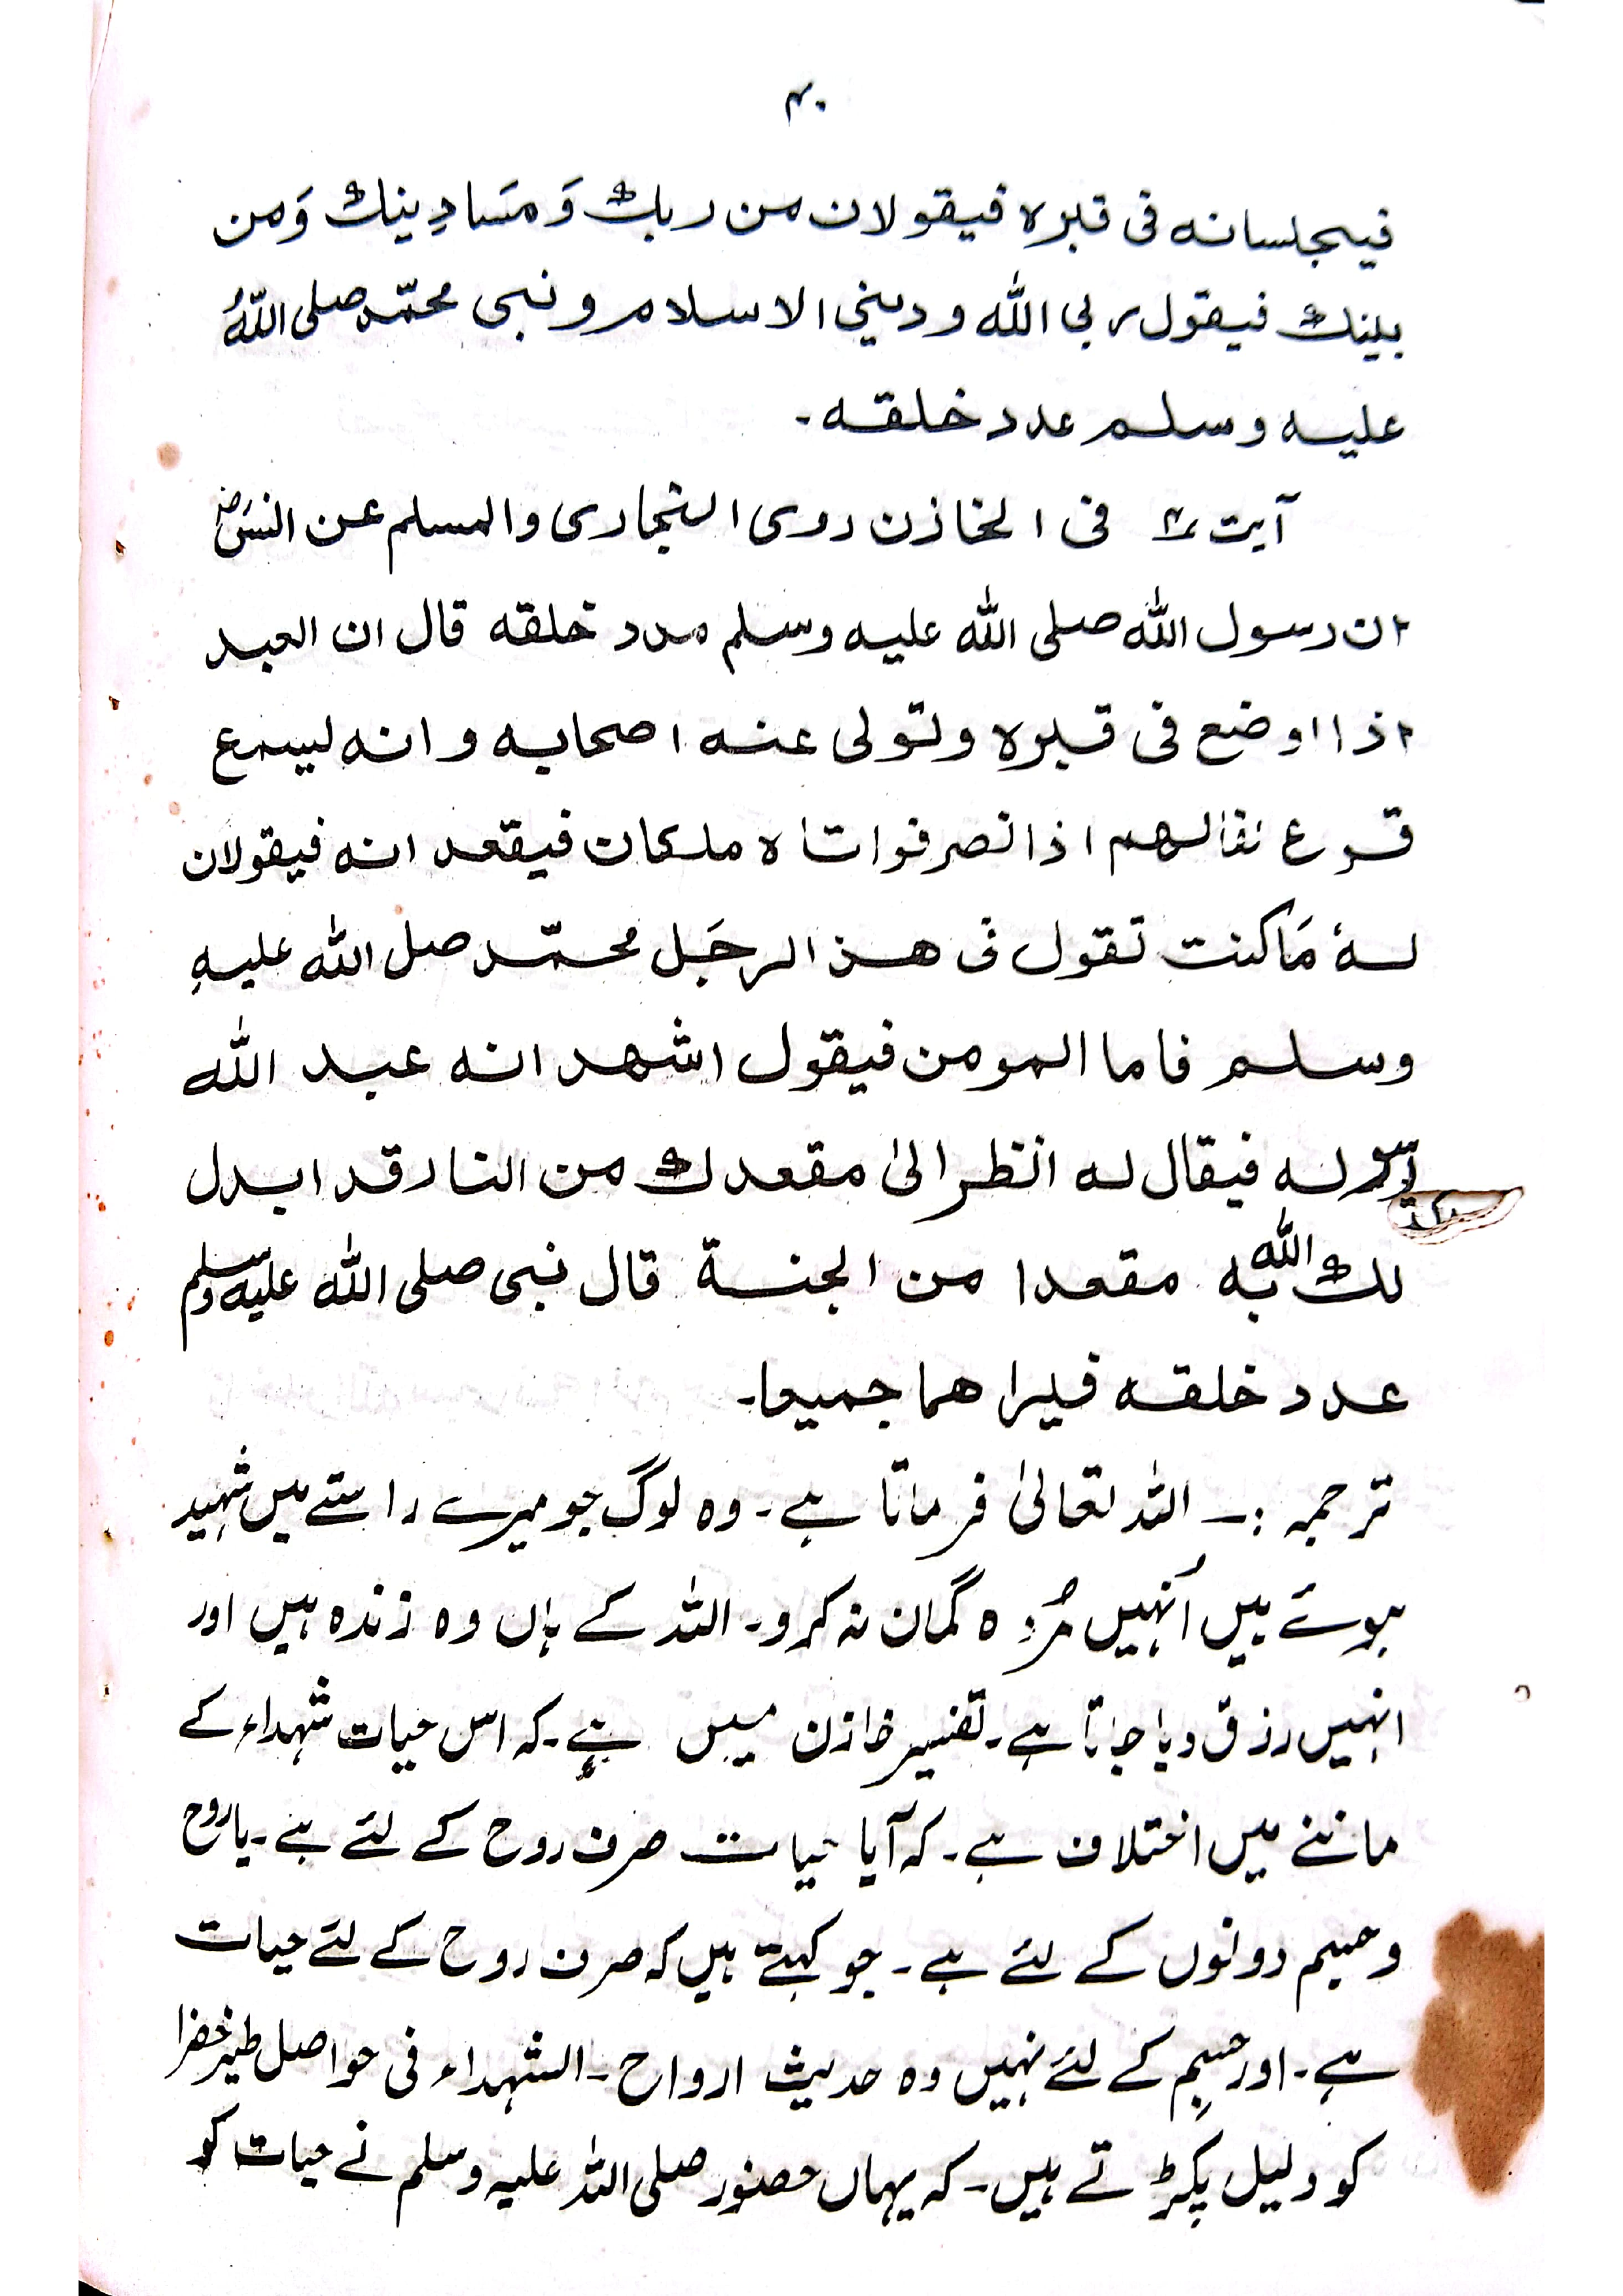 ۴۰
فیجلسانه فی قبره فیقولان من ربك وَ مَسَا دِینك وَمن
بینك فیقول ربی الله و دینی الاسلام و نبی محمّد صلی اللّٰهُ
علیه وسلم عدد خلقه۔
آیت ۴ فی الخازن روی البخاری والمسلم عن انسؓ
ان رسول الله صلی الله علیه وسلم مدد خلقه قال ان العبد
اذا اوضع فی قبره وتولی عنه اصحابه وانه لیسمع
قرع نقالهم اذا نصرفوا اتاه ملکان فیقعد انه فیقولان
لهٗ مَا کنت تقول فی هذ الرجَل محمّد صل الله علیهِ
وسلم فاما المومن فیقول اشهد انه عبد الله
ورسوله فیقال له انظر الیٰ مقعدك من النار قد ابدل
لك الله به مقعدا من الجنة قال نبی صلی الله علیه وسلم
عدد خلقه فیرا هما جمیعا۔
ترجمہ :۔ اللہ تعالیٰ فرماتا ہے۔ وہ لوگ جو میرے راستے میں شہید
ہوئے ہیں اُنہیں مُردہ گمان نہ کرو۔ اللہ کے ہاں وہ زندہ ہیں اور
انہیں رزق دیا جاتا ہے۔ تفسیر خازن میں ہے۔ کہ اس حیات شہداء کے
ماننے میں اختلاف ہے۔ کہ آیا حیات صرف روح کے لئے ہے۔ یا روح
وجسم دونوں کے لئے ہے۔ جو کہتے ہیں کہ صرف روح کے لئے حیات
ہے۔ اور جسم کے لئے نہیں وہ حدیث ارواح۔ الشہداء فی حواصل طیر خضرا
کو دلیل پکڑتے ہیں۔ کہ یہاں حضور صلی اللہ علیہ وسلم نے حیات کو